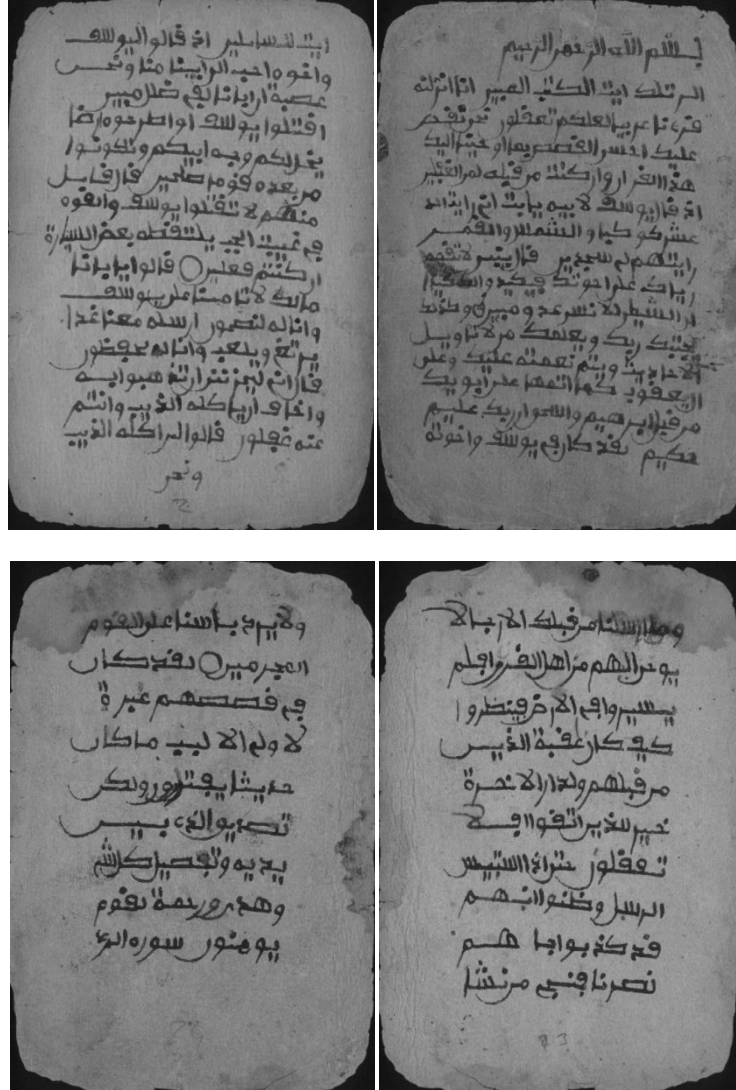 بسم الله الرحمن الرحيم
الر تلك ايت الكتب المبين انا انزلنه
قرءنا عربيا لعلكم تعقلون نحن نقص
عليك احسن القصص بما اوحينا اليك
هذا القران وان كنت من قبله لمن الغفلين
اذ قال يوسف لابيه يابت اني رايت احد
عشر كوكبا والشمس والقمر
رايتهم لي سجدين قال يبني لا تقصص
رياك على اخوتك فيكيدوا لك كيدا
ان الشيطن للانسن عدو مبين وكذلك
يجتبيك ربك ويعلمك من تاويل
الاحاديث ويتم نعمته عليك وعلى
ال يعقوب كما اتمها على ابويك
من قبل ابرهيم واسحو ان ربك عليم
حكيم لقد كان في يوسف واخوته
ايت للسايلين اذ قالوا ليوسف
واخوه احب الى ابينا منا ونحن
عصبة ان ابانا لفي ضلل مبين
اقتلوا يوسف او اطرحوه ارضا
يخل لكم وجه ابيكم وتكونوا
من بعده قوما صلحين قال قايل
منهم لا تقتلوا يوسف والقوه
في غيبت الجب يلتقطه بعض السيارة
ان كنتم فعلين قالوا يابانا
مالك لا تامنا على يوسف
وانا له لنصحون ارسله معنا غدا
يرتع ويلعب وانا له لحفظون
قال اني ليحزنني ان تذهبوا به
واخاف ان ياكله الذيب وانتم
عنه غفلون قالوا لين اكله الذيب
ونحن
وما ارسلنا من قبلك الا رجالا
يوحى اليهم من اهل القرى افلم
يسيروا في الارض فينظروا
كيف كان عقبة الذين
من قبلهم ولدار الاخرة
خير للذين اتقوا افلا
تعقلون حتى اذا استييس
الرسل وظنوا انهم
قد كذبوا جا هم
نصرنا فننجي من نشا
ولا يرد باسنا عن القوم
المجرمين لقد كان
في قصصهم عبرة
لاولي الالبب ما كان
حديثا يفترى ولكن
تصديق الذي بين
يديه وتفصيل كل شي
وهدى ورحمة لقوم
يومنون سورة الرعد